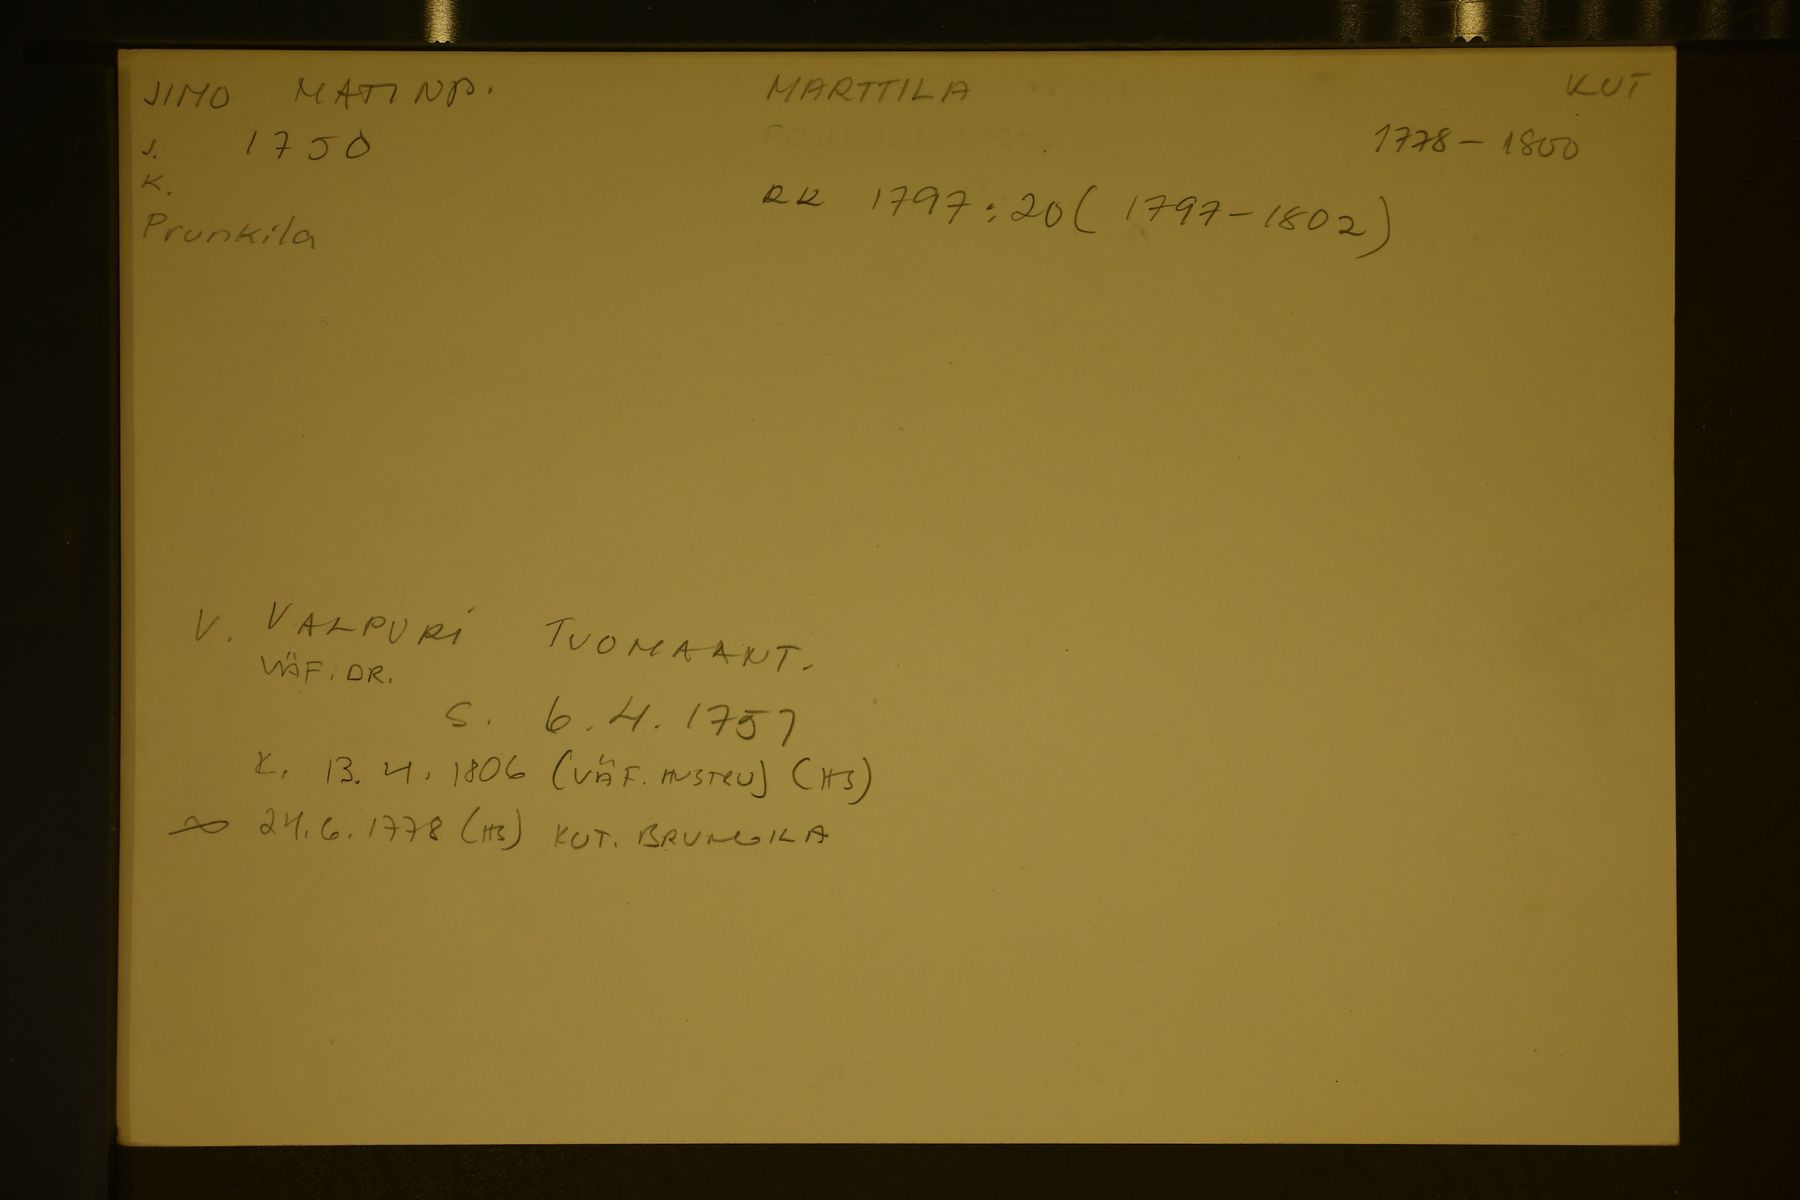 JIMO MATINP. MARTTILA KUT
S. 1750 1778-1800
K. RR 1797:20 (1797-1802)
Prunkila
V. VALPURI TUOMAANT.
VÄF. DR.
S. 6.4.1757
K. 13.4.1806 (VÄF. HUSTRU) (HS)
∞ 24.6.1778 (HS) KUT. BRUNGILA